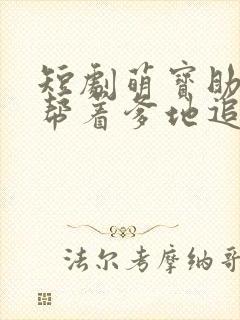 短剧萌寶助
帮着爹地追
法尔考摩纳哥